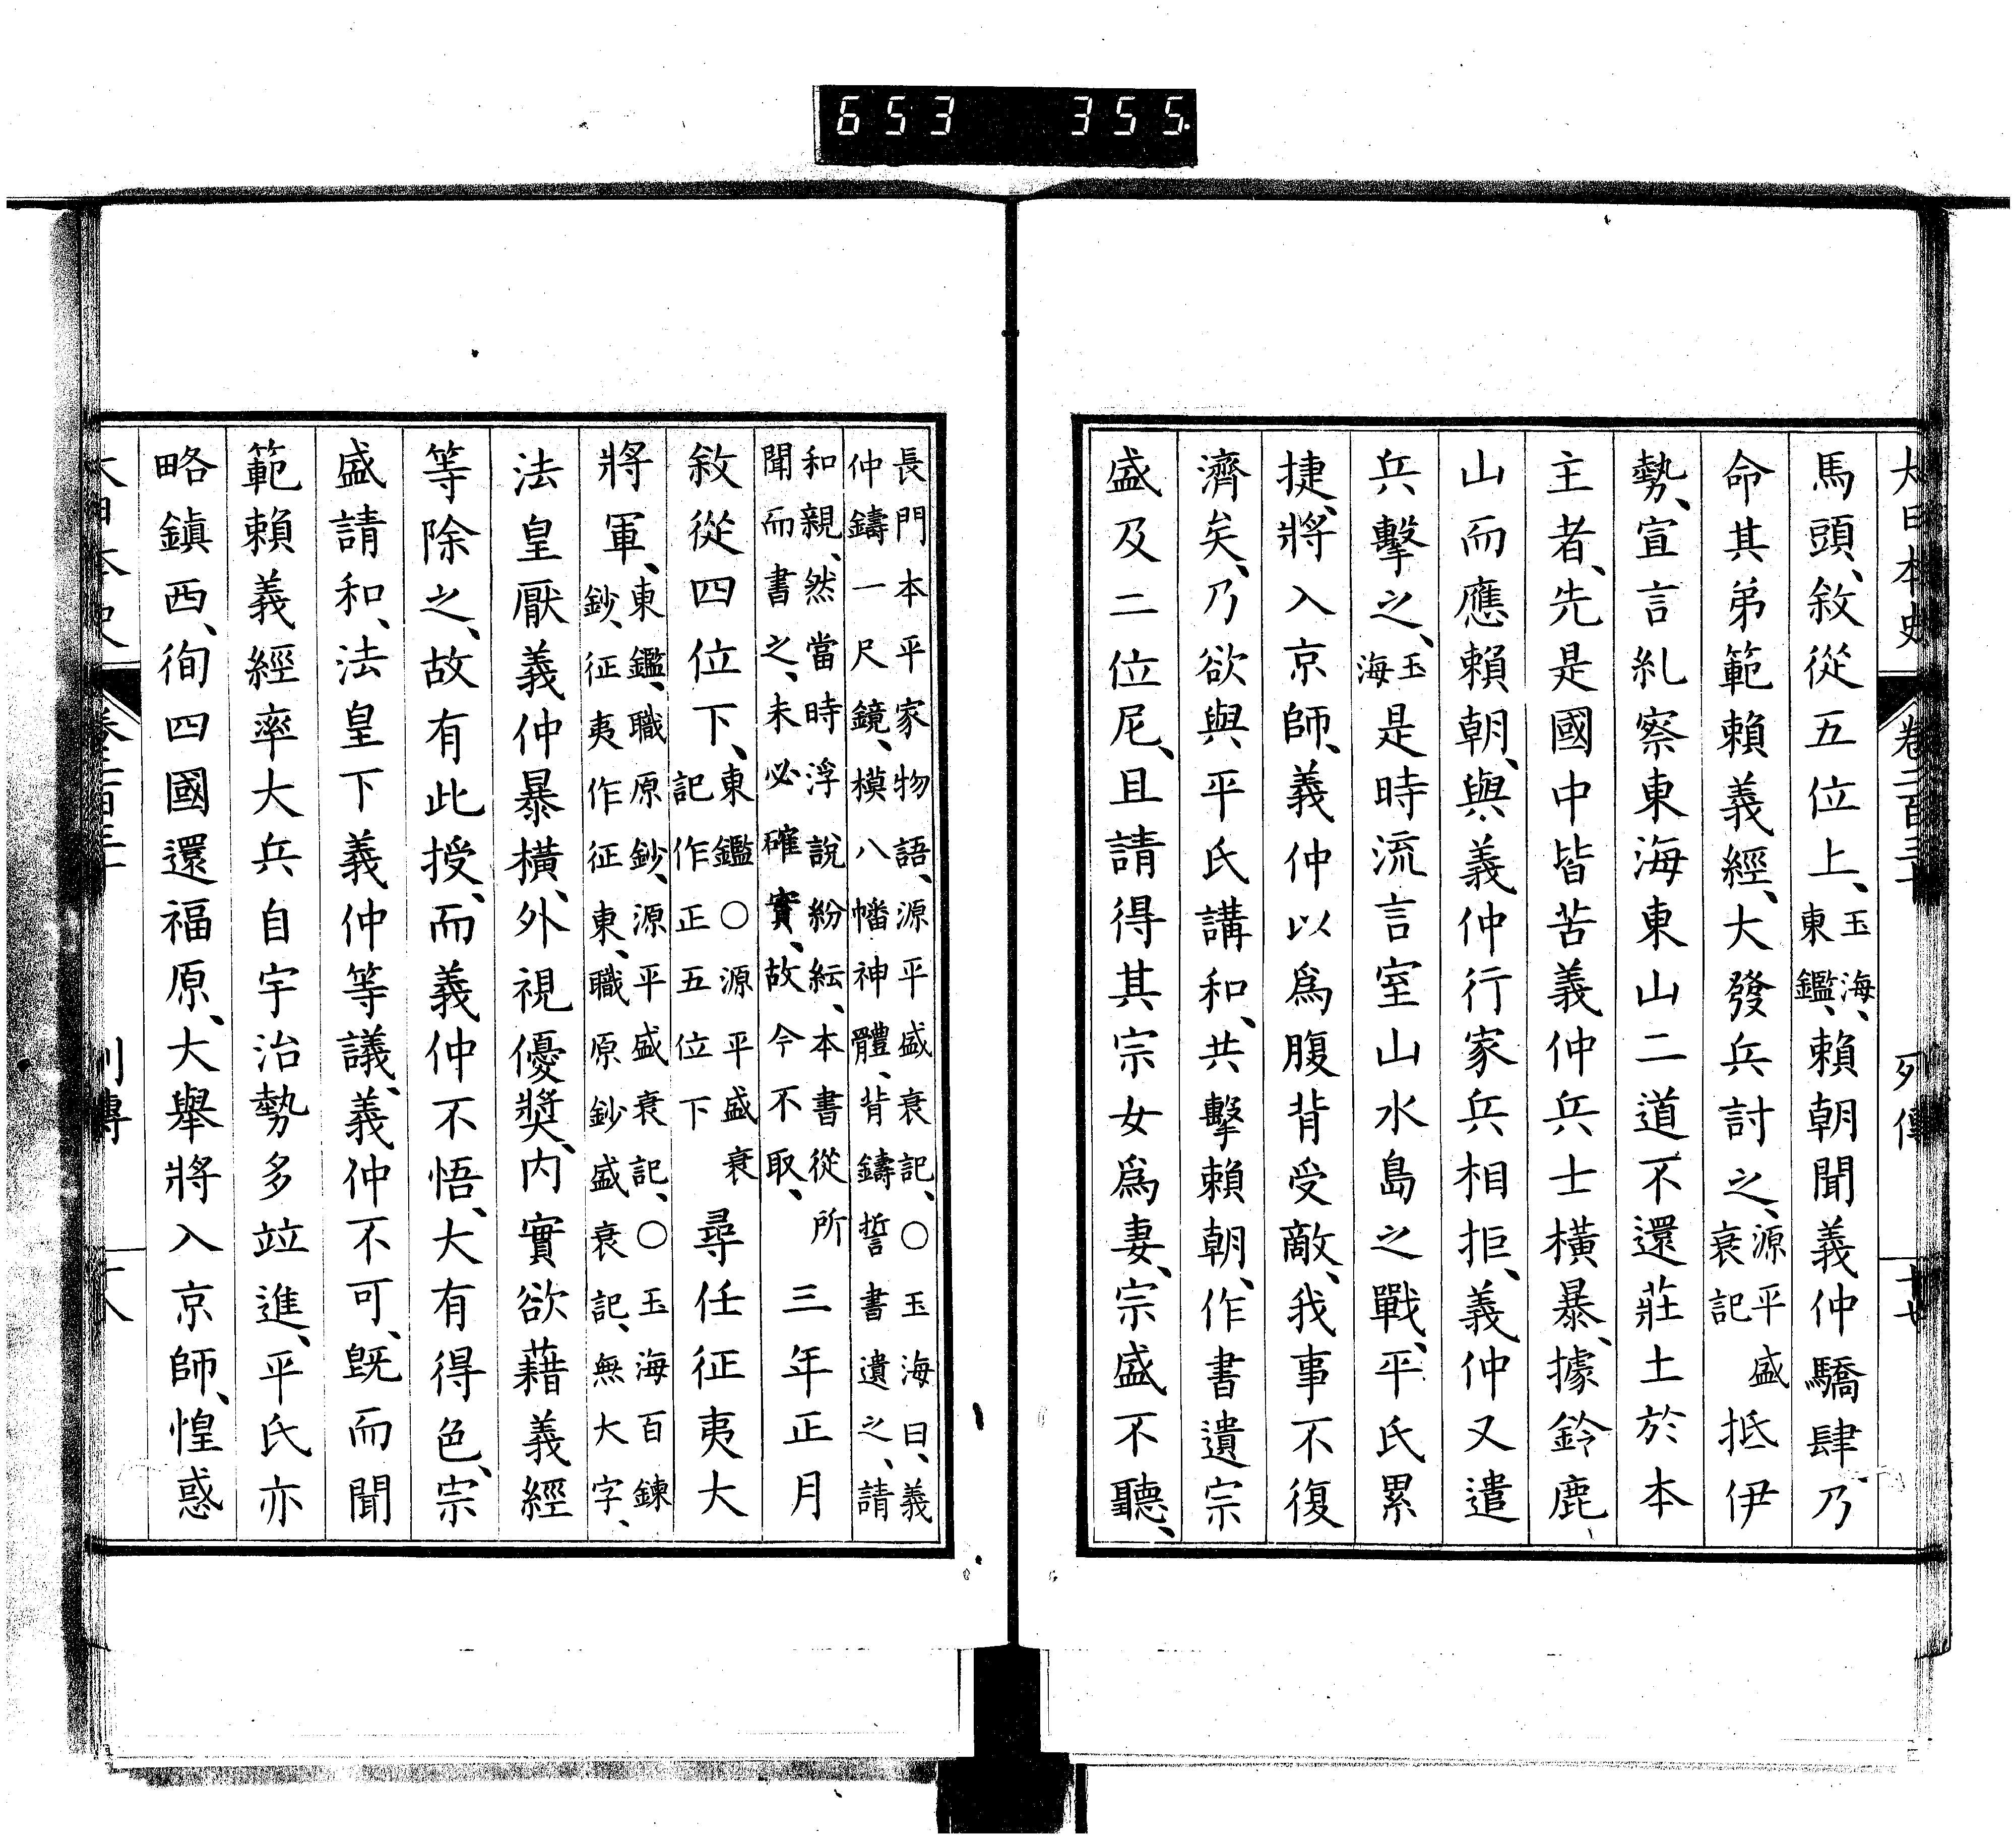 653 355
大日本史 卷二百三十 列傳 十七
馬頭、敘從五位上、玉海、東鑑、賴朝聞義仲驕肆、乃
命其弟範賴義經、大發兵討之、源平盛衰記抵伊
勢、宣言糺察東海東山二道不還莊土於本
主者、先是國中皆苦義仲兵士橫暴、據鈴鹿
山而應賴朝、與義仲行家兵相拒、義仲又遣
兵擊之、玉海是時流言室山水島之戰、平氏累
捷、將入京師、義仲以爲腹背受敵、我事不復
濟矣、乃欲與平氏講和、共擊賴朝、作書遺宗
盛及二位尼、且請得其宗女爲妻、宗盛不聽、
長門本平家物語、源平盛衰記、○玉海曰、義
仲鑄一尺鏡、模八幡神體、背鑄誓書遺之、請
和親、然當時浮說紛紜、本書從所
聞而書之、未必確實、故今不取、三年正月
敘從四位下、東鑑○源平盛衰記作正五位下尋任征夷大
將軍、東鑑、職原鈔、源平盛衰記、○玉海百鍊
鈔、征夷作征東、職原鈔盛衰記、無大字、
法皇厭義仲暴橫、外視優奬、内實欲藉義經
等除之、故有此授、而義仲不悟、大有得色、宗
盛請和、法皇下義仲等議、義仲不可、旣而聞
範賴義經率大兵自宇治勢多竝進、平氏亦
略鎭西、徇四國還福原、大擧將入京師、惶惑
大日本史 卷二百三十 列傳 十八